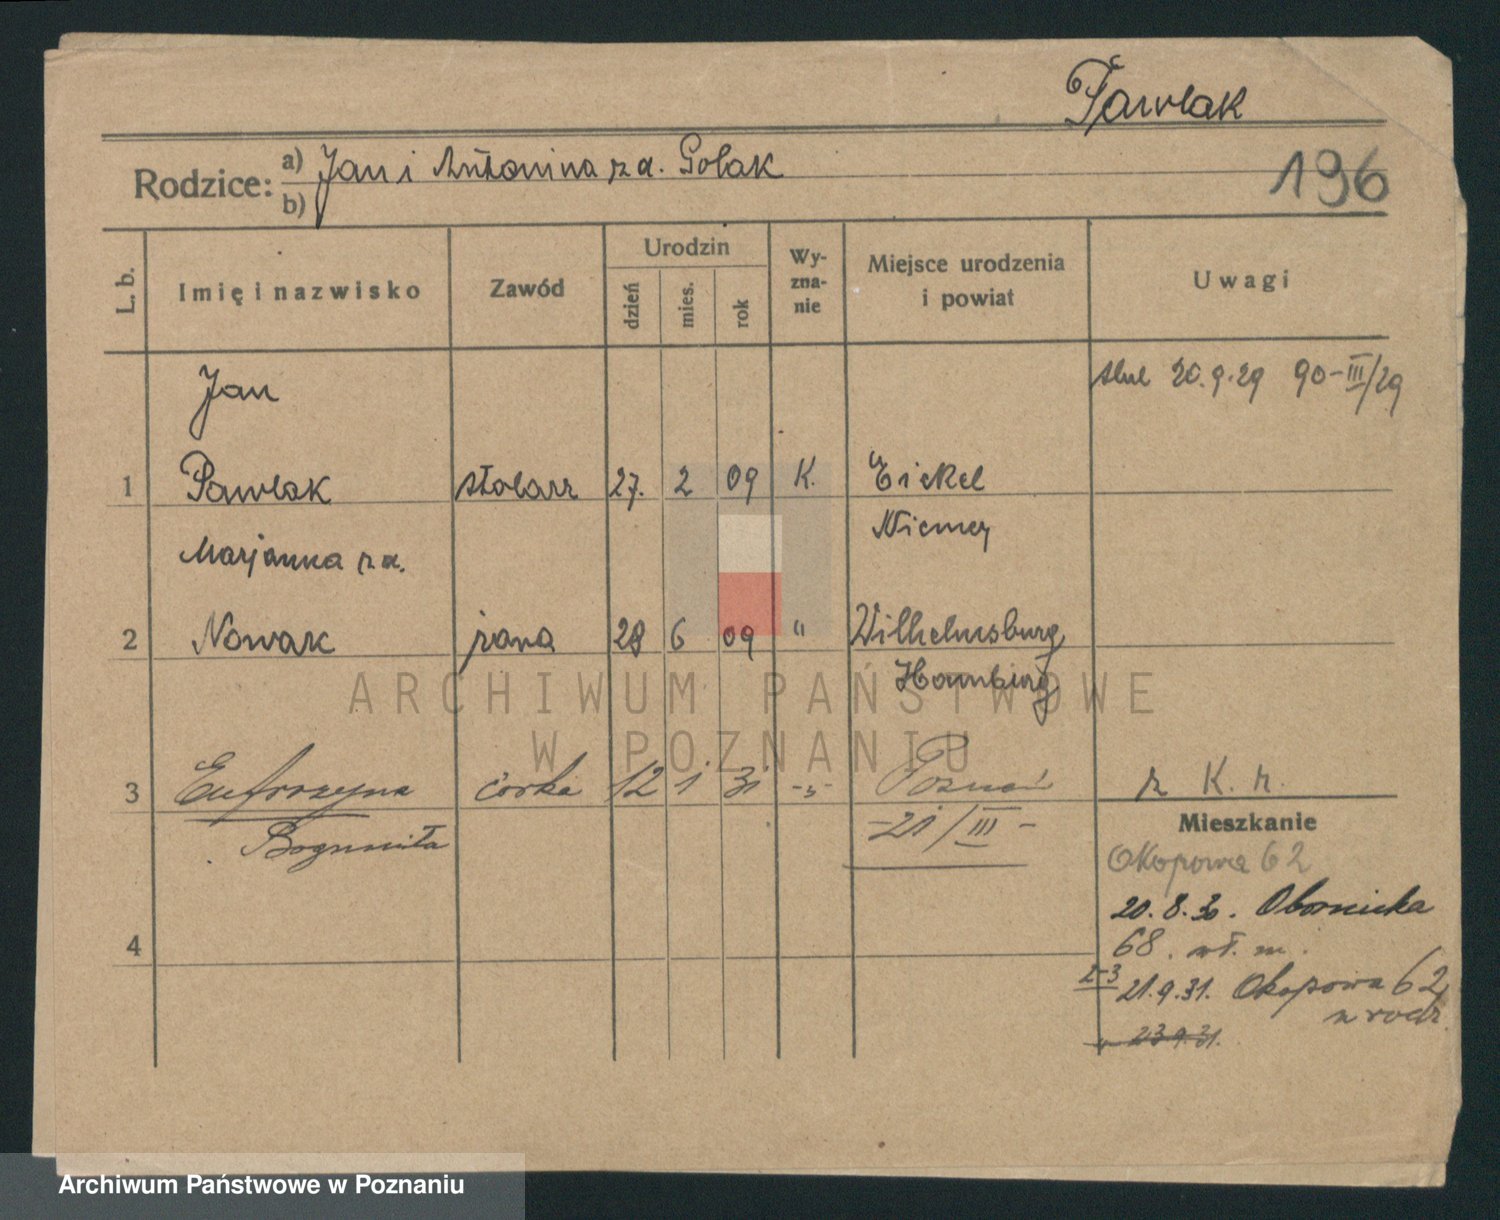 Pawlak
Rodzice: a) Jan i Antonina z d. Golak
b)
196
L. b.
Imię i nazwisko
Zawód
Urodzin
dzień
mies.
rok
Wy-
zna-
nie
Miejsce urodzenia
i powiat
Uwagi
Jan
ślub 20.9.29 90-III/29
1 Pawlak stolarz 27. 2 09 K. Eickel
Niemcy
Marjanna z d.
2 Nowak żona 28 6 09 " Wilhelmsburg
Hamburg
3 Eufrozyna córka 12 1 31 -"- Poznań
Bogumiła
-21/III-
z K. r.
Mieszkanie
Okopowa 62
20.8.30. Obornicka
68. wł. m.
4
2-3 21.9.31. Okopowa 62
u rodz
23.9.31.
ARCHIWUM PAŃSTWOWE
W POZNANIU
Archiwum Państwowe w Poznaniu